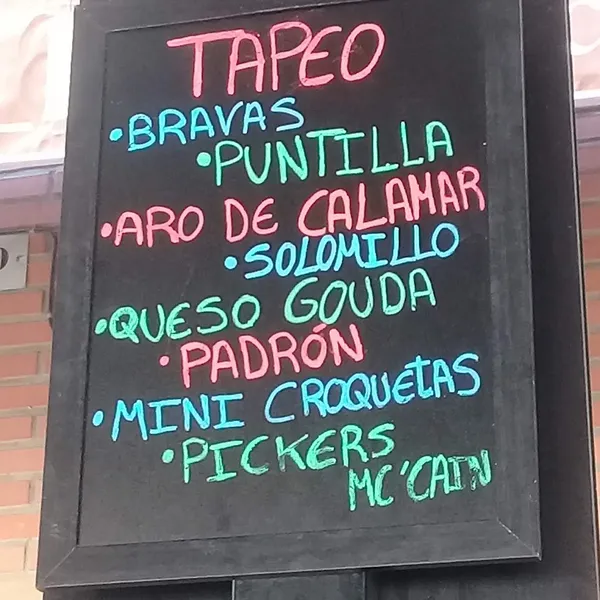 TAPEO
•BRAVAS
•PUNTILLA
•ARO DE CALAMAR
•SOLOMILLO
•QUESO GOUDA
•PADRÓN
•MINI CROQUETAS
•PICKERS
MC'CAIN